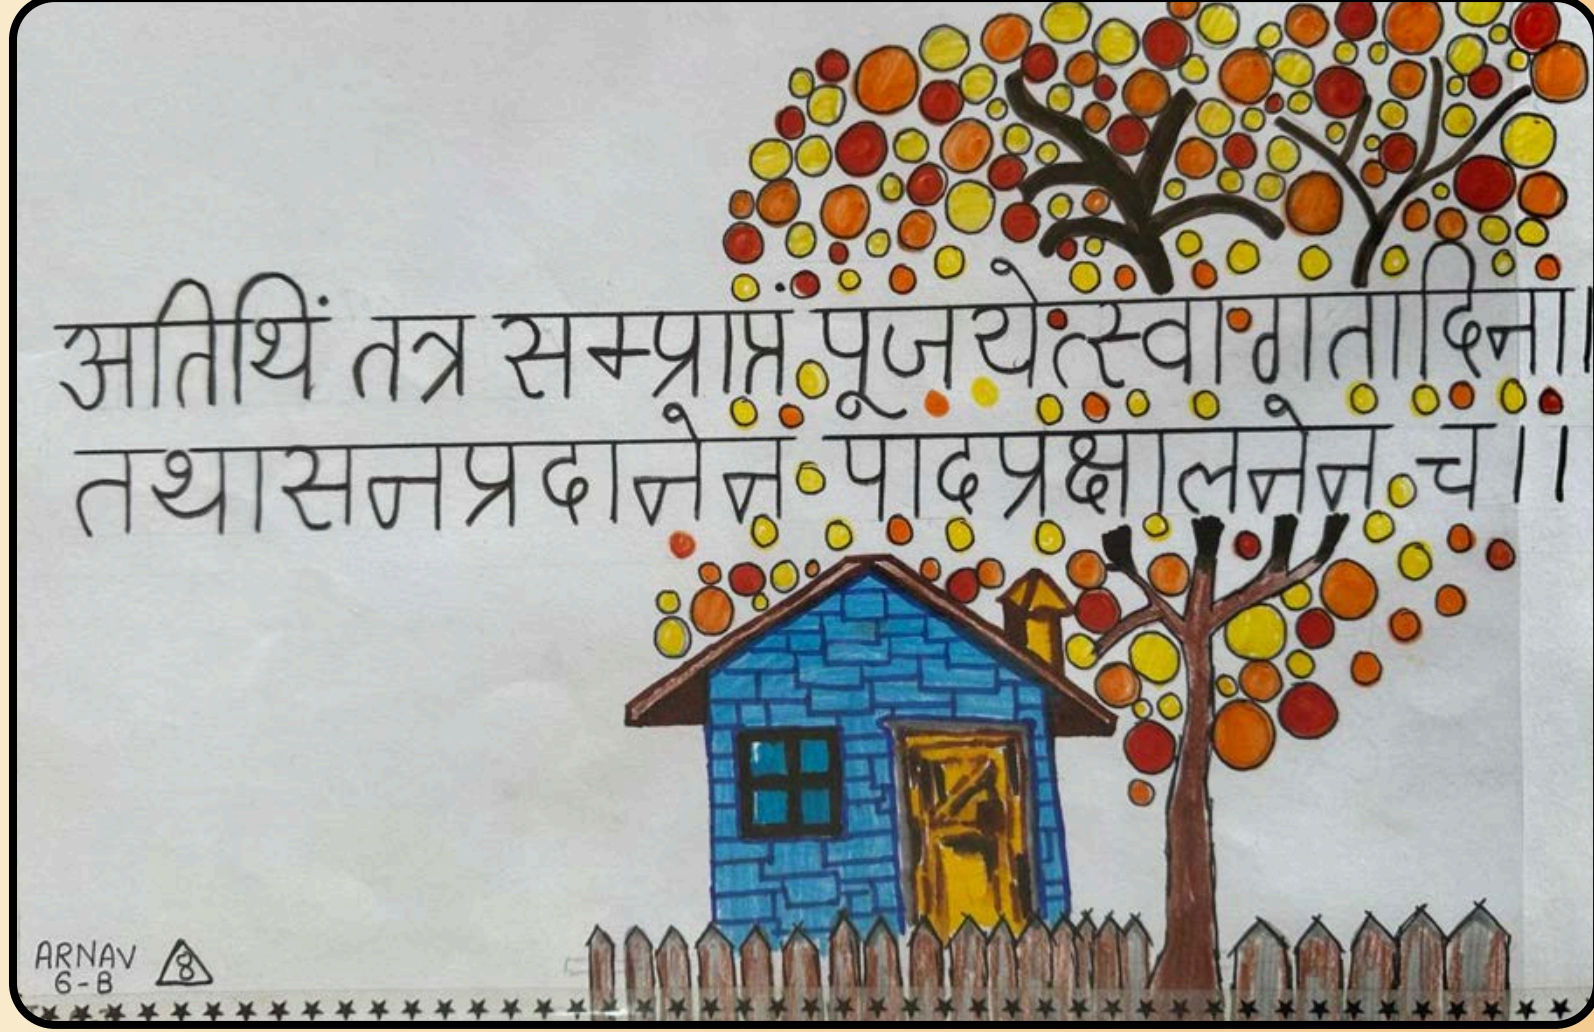 अतिथिं तत्र सम्प्राप्तं पूजयेत्स्वागतादिना।
तथासनप्रदानेन पादप्रक्षालनेन च।।
ARNAV
6-B
8